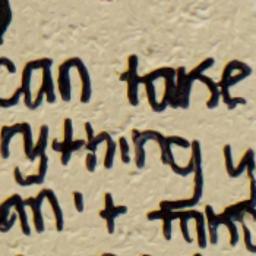 can take
rything y
an't